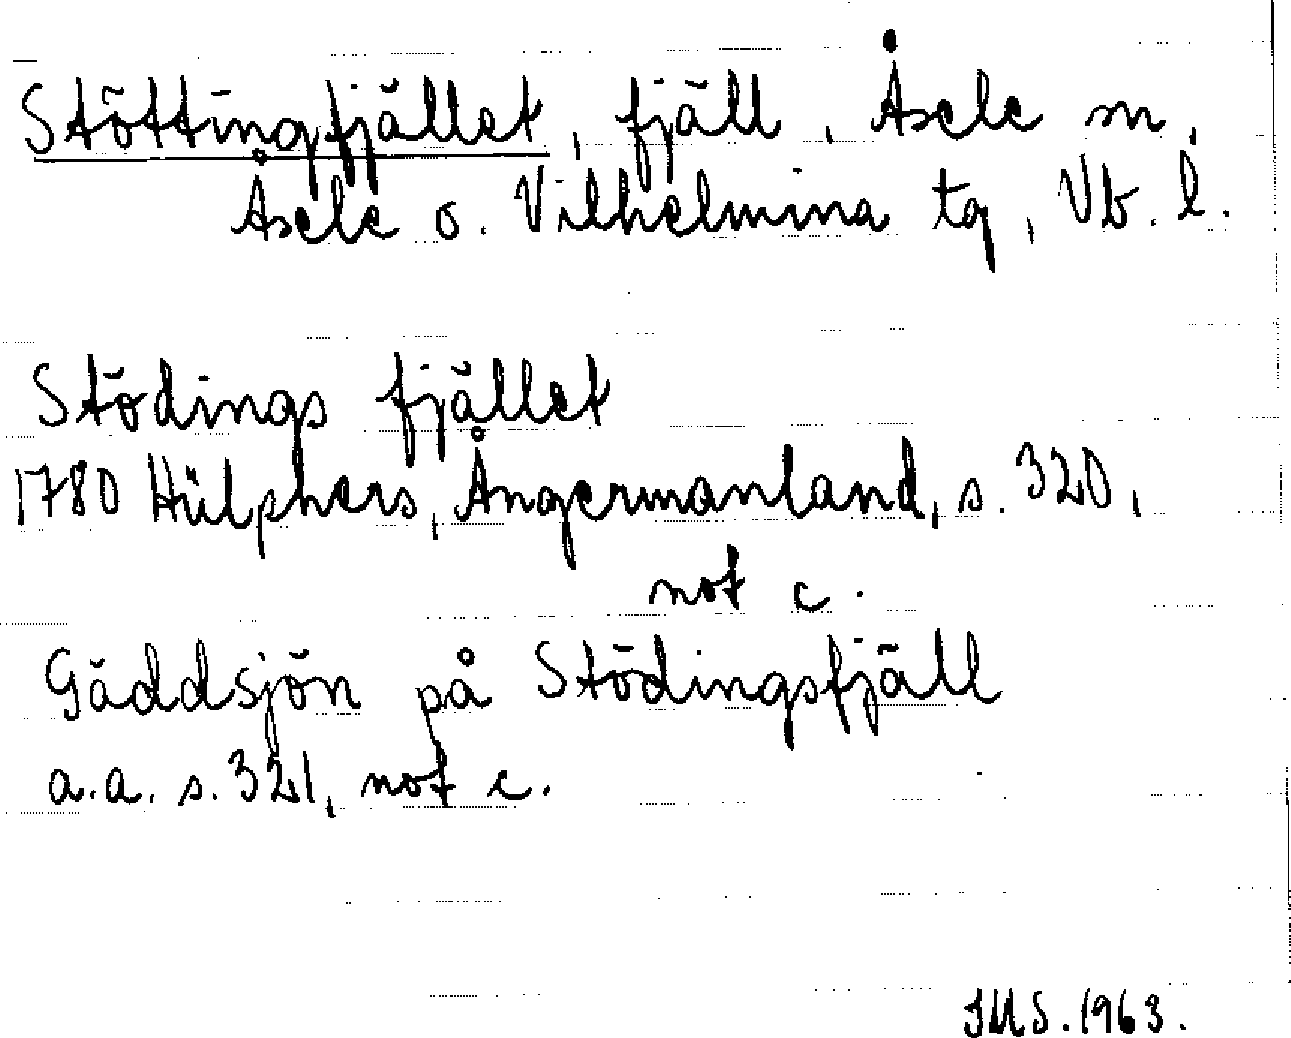 Stöttingfjället, fjäll, Åsele sn,
Åsele o. Vilhelmina tg, Vb. l.
Stödings fjället
1780 Hülphers, Ångermanland, s. 320,
not c.
Gäddsjön på Stödingsfjäll
a.a. s. 321, not c.
IMS. 1963.